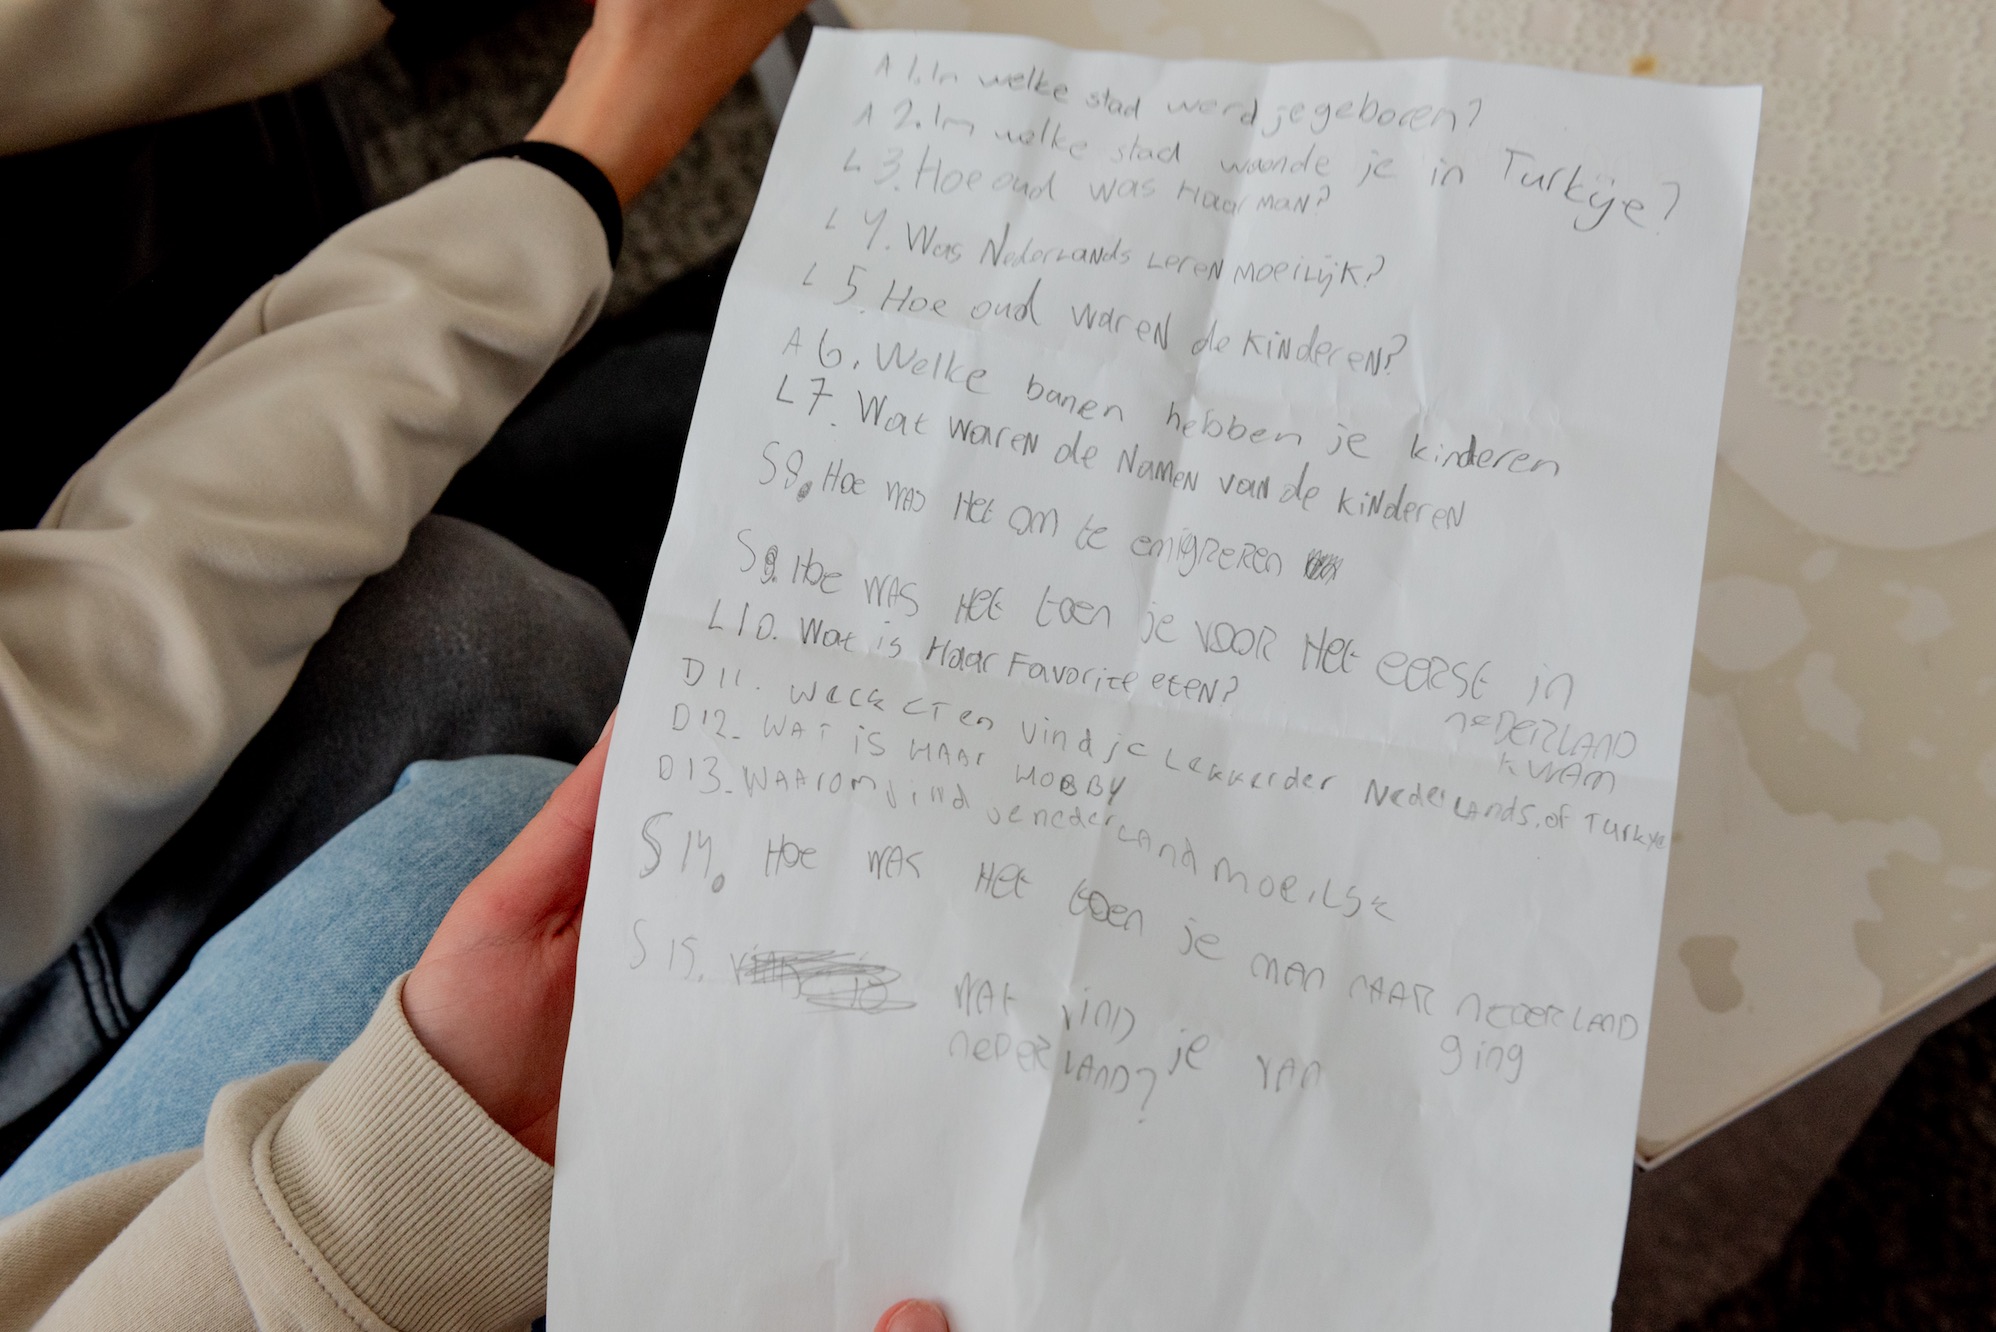 A 1. In welke stad werd je geboren?
A 2. In welke stad woonde je in Turkije?
L 3. Hoe oud was Haar man?
L 4. Was Nederlands Leren moeilijk?
L 5. Hoe oud waren de kinderen?
A 6. Welke banen hebben je kinderen
L 7. Wat waren de Namen van de kinderen
S 8. Hoe WAS Het om te emigreren
S 9. Hoe WAS Het toen je VOOR Het eerst in
neDERLAND
KWAM
L 10. Wat is Haar Favoriete eten?
D 11. Welk eten vind je Lekkerder Nederlands of Turkye
D 12. WAT is HAAr HOBBY
D 13. WAArom vind je nederLAnd moeiLSk
S 14. Hoe WAS Het toen je man nAAR neDERLAND
ging
S 15. WAt vinD je VAn
neDERLAND?